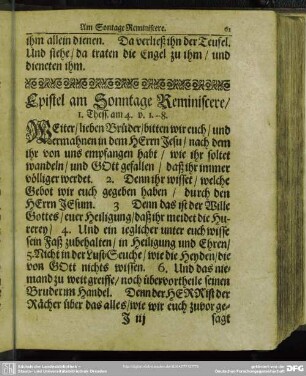 Am Sontage Reminiscere. 61
ihm allein dienen. Da verließ ihn der Teufel.
Und siehe / da traten die Engel zu ihm / und
dieneten ihm.
Epistel am Sonntage Reminiscere /
1. Thess. am 4. v. 1.-8.
WEiter / lieben Brüder / bitten wir euch / und
vermahnen in dem HErrn Jesu / nach dem
ihr von uns empfangen habt / wie ihr soltet
wandeln / und GOtt gefallen / daß ihr immer
völliger werdet. 2. Denn ihr wisset / welche
Gebot wir euch gegeben haben / durch den
HErrn JEsum. 3 Denn das ist der Wille
Gottes / euer Heiligung / daß ihr meidet die Hu-
rerey / 4. Und ein ieglicher unter euch wisse
sein Faß zubehalten / in Heiligung und Ehren /
5. Nicht in der Lust-Seuche / wie die Heyden / die
von GOtt nichts wissen. 6. Und das nie-
mand zu weit greiffe / noch übervortheile seinen
Bruder im Handel. Denn der HERR ist der
Rächer über das alles / wie wir euch zuvor ge-
J iij sagt